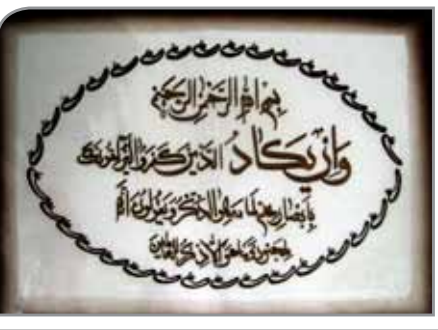 بسم الله الرحمن الرحيم
وان يكاد الذين كفروا ليزلقونك
بابصارهم لما سمعوا الذكر ويقولون انه
لمجنون وما هو الا ذكر للعالمين